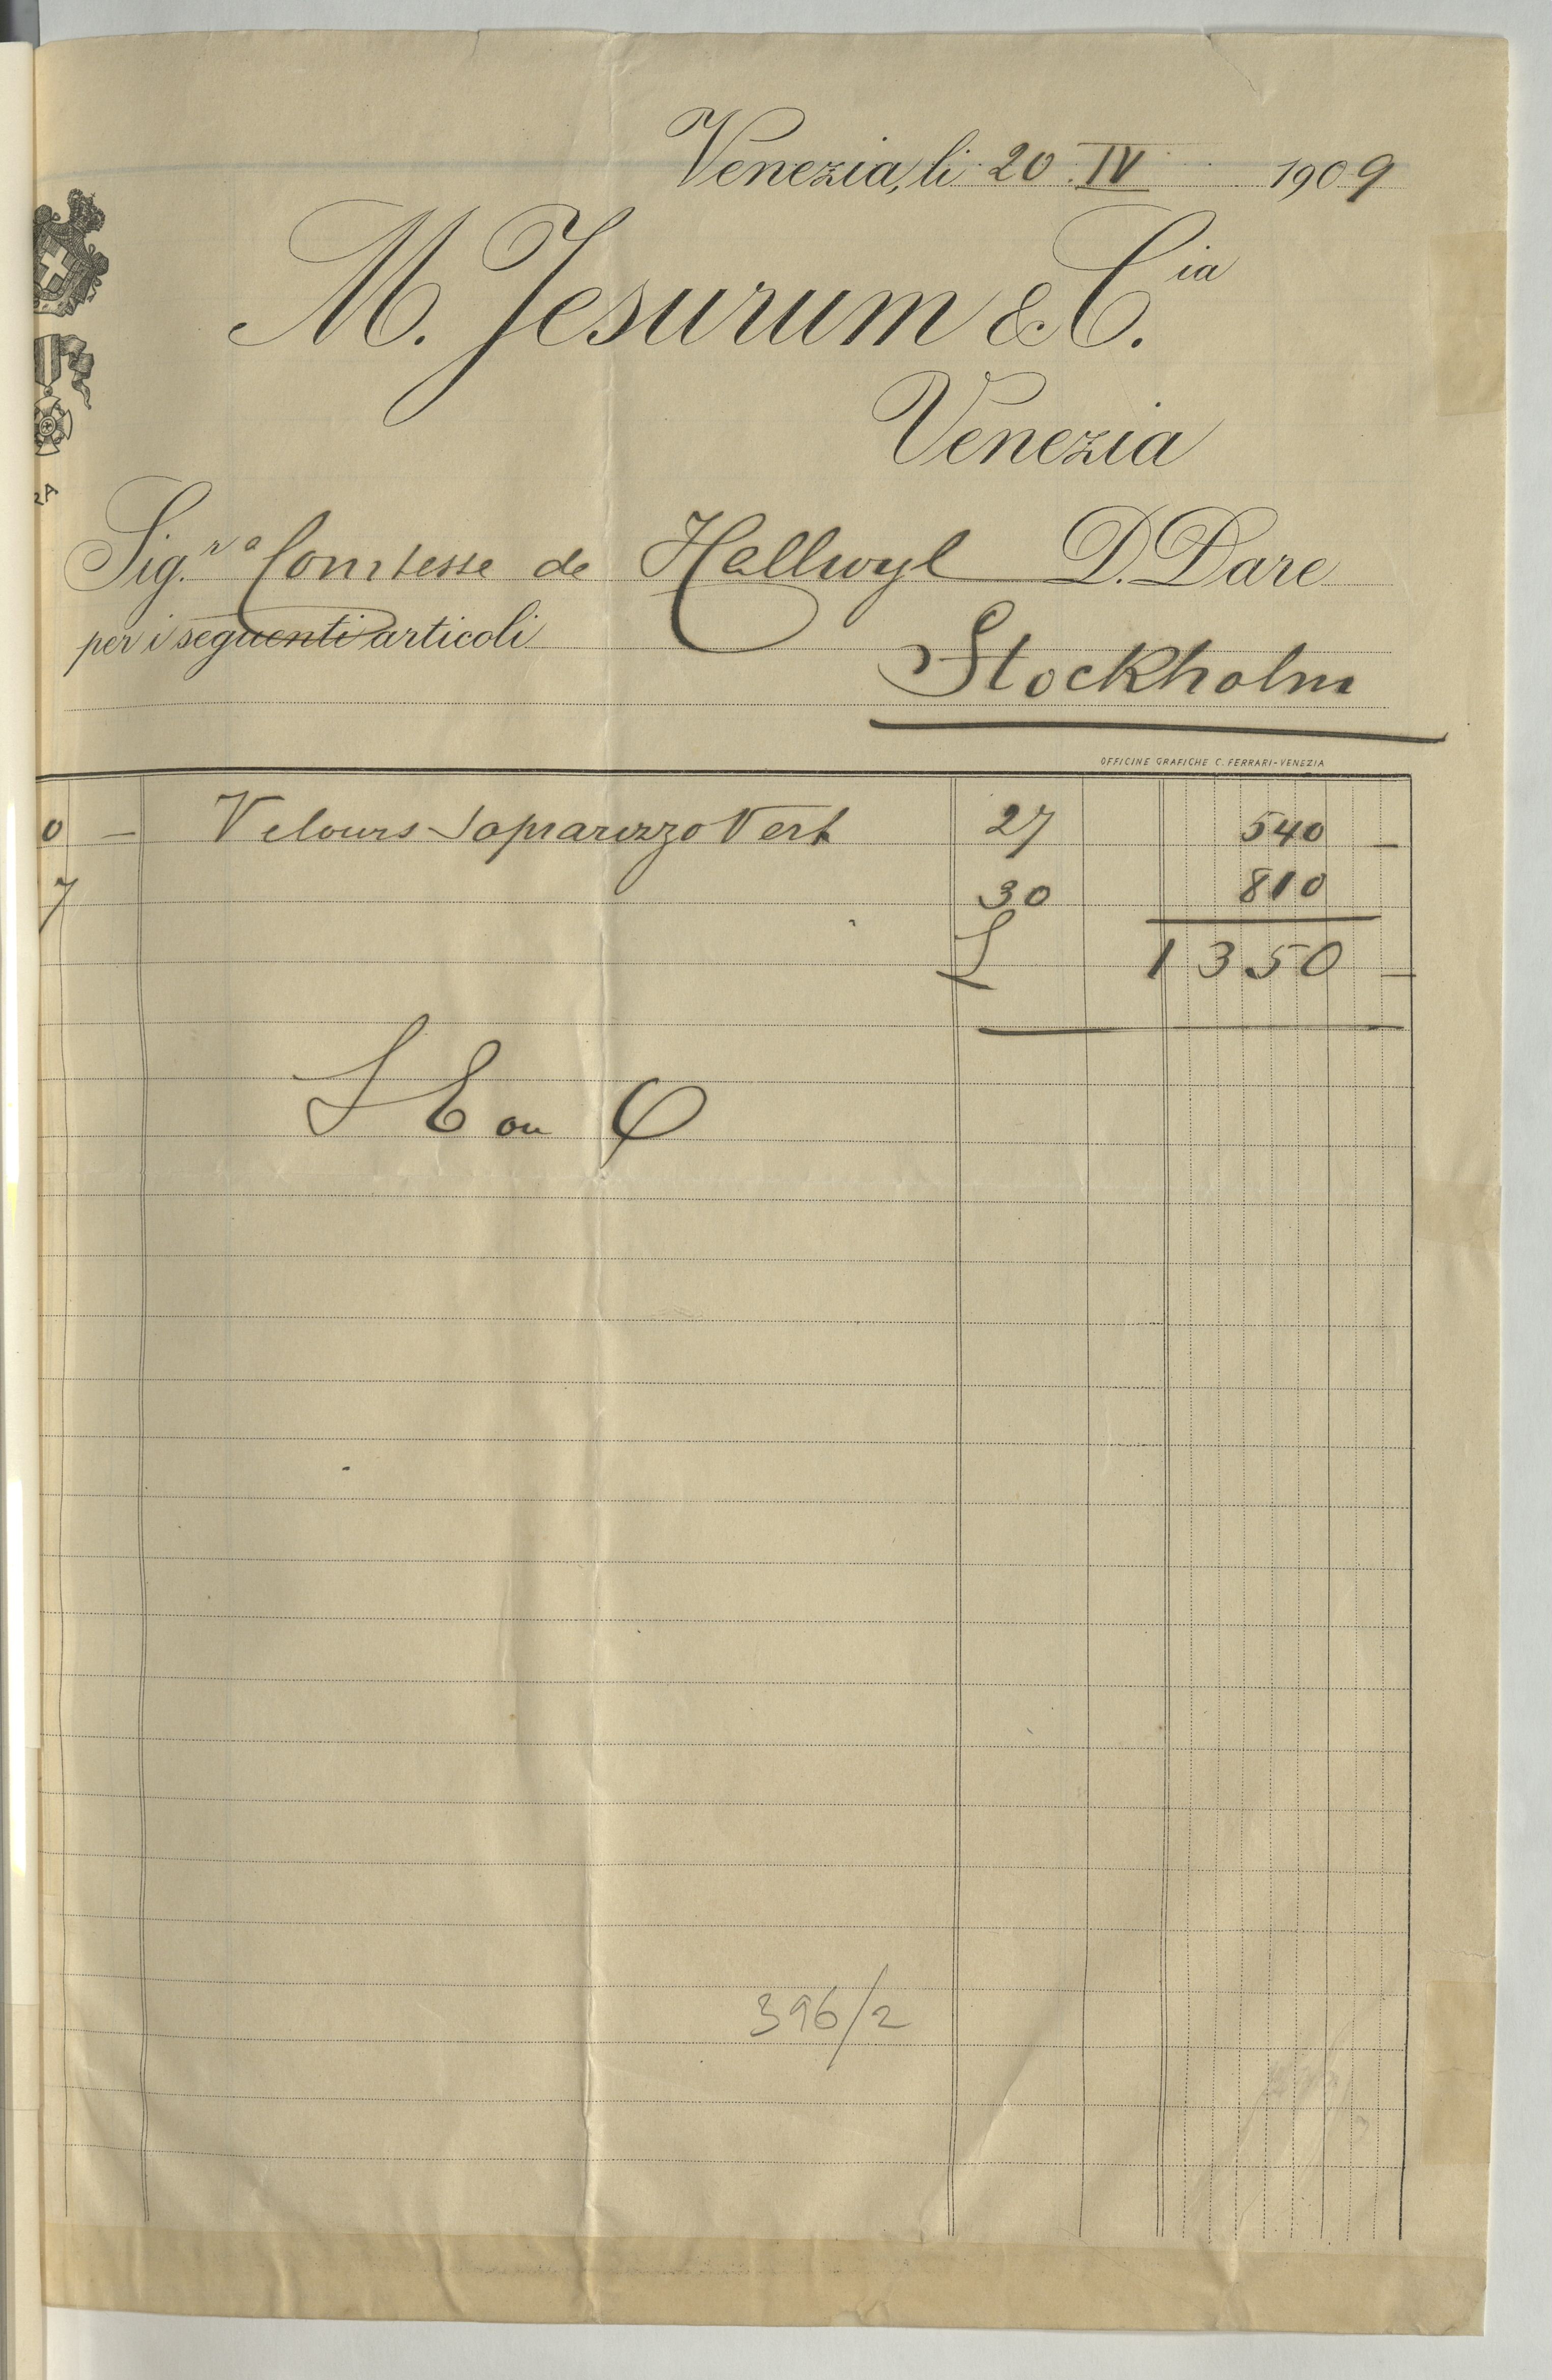 Venezia, li 20 IV 1909
M. Jesurum & C.ia
Venezia
Sig.ra Comtesse de Hallwyl D. Dare
per i seguenti articoli
Stockholm
OFFICINE GRAFICHE C. FERRARI-VENEZIA
0 — Velours Soprarizzo Vert 27 540 —
7 30 810
L 1350 —
S E ou O
396/2